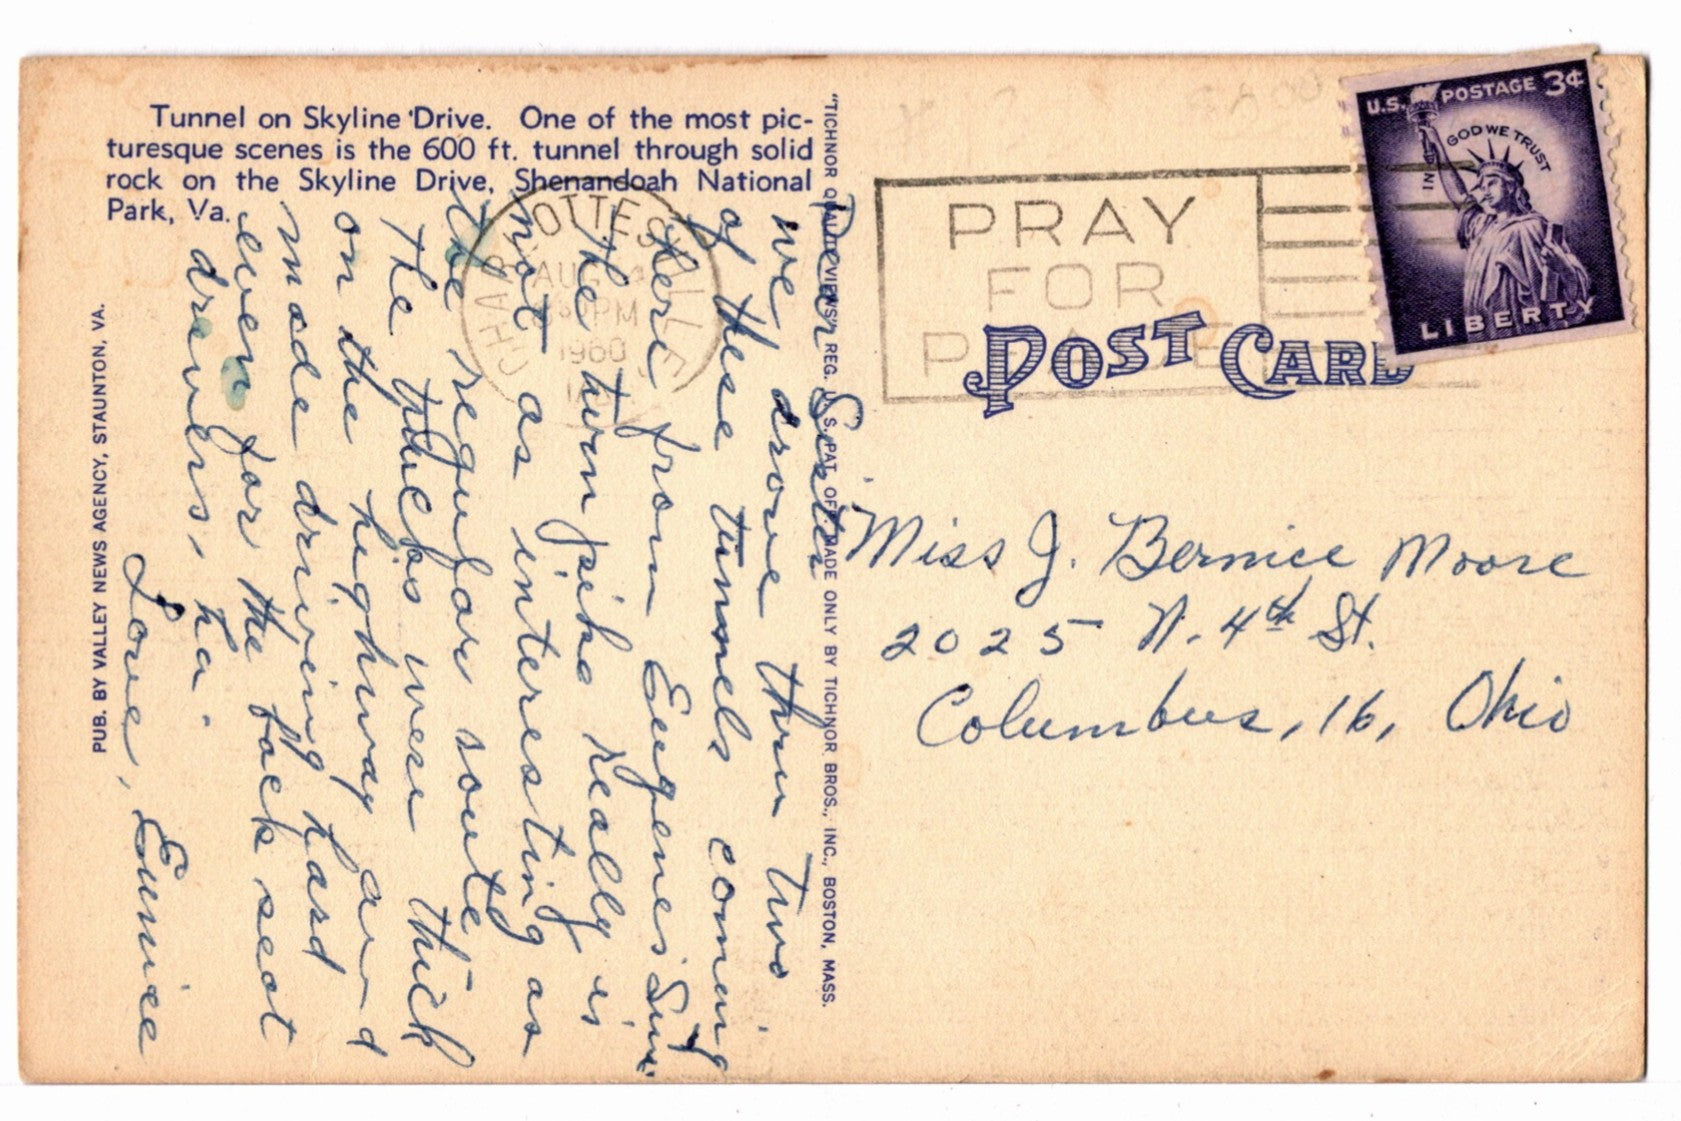 Tunnel on Skyline Drive. One of the most pic-
turesque scenes is the 600 ft. tunnel through solid
rock on the Skyline Drive, Shenandoah National
Park, Va.
PUB. BY VALLEY NEWS AGENCY, STAUNTON, VA.
"TICHNOR QUALITY VIEWS," REG. U. S. PAT. OFF. MADE ONLY BY TICHNOR BROS., INC., BOSTON, MASS.
Dear Sister
we drove thru two
of these tunnels coming
here from Eugenes Sun.
The turn pike really is
not as interesting as
the regular route
The trucks were thick
on the highway and
made driving hard
even for the back seat
drivers, ha
Love, Eunice
CHARLOTTESVILLE
AUG
PM
1960
PRAY
FOR
PEACE
U.S. POSTAGE 3¢
IN GOD WE TRUST
LIBERTY
POST CARD
Miss J. Bernice Moore
2025 N. 4th St.
Columbus, 16, Ohio